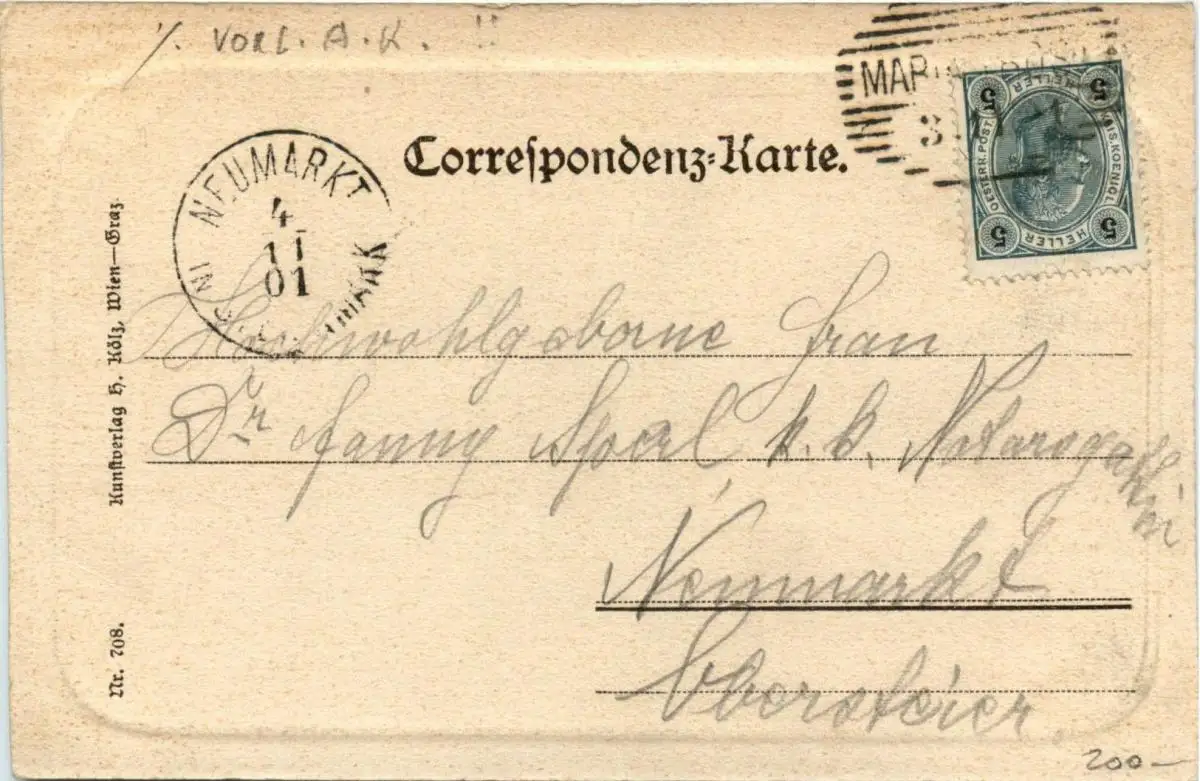 % VORL. A.K. !!
MARIA
3 11
Correspondenz-Karte.
5 HELLER 5
OESTERR. POST KAIS. KOENIGL.
5 HELLER 5
NEUMARKT
4
11
01
IN STEIERMARK
Hochwohlgeborne Frau
Dr Fanny k. k. Notarsgattin
Neumarkt
Obersteier
Kunstverlag H. Kölz, Wien—Graz
Nr. 708.
200—